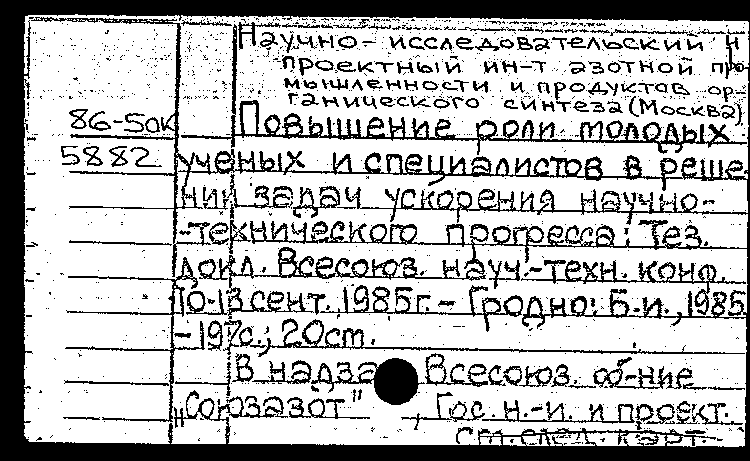 Научно-исследовательский и
проектный ин-т азотной про-
мышленности и продуктов ор-
ганического синтеза (Москва)
86-5ок Повышение роли молодых
5882 ученых и специалистов в реше-
нии задач ускорения научно-
-технического прогресса: Тез.
докл. Всесоюз. науч.-техн. конф.
10-13 сент. 1985г. - Гродно: Б.и., 1985
- 197с.; 20см.
В надзаг Всесоюз. об-ние
„Союзазот" , Гос. н.-и. и проект.
см. след. карт.